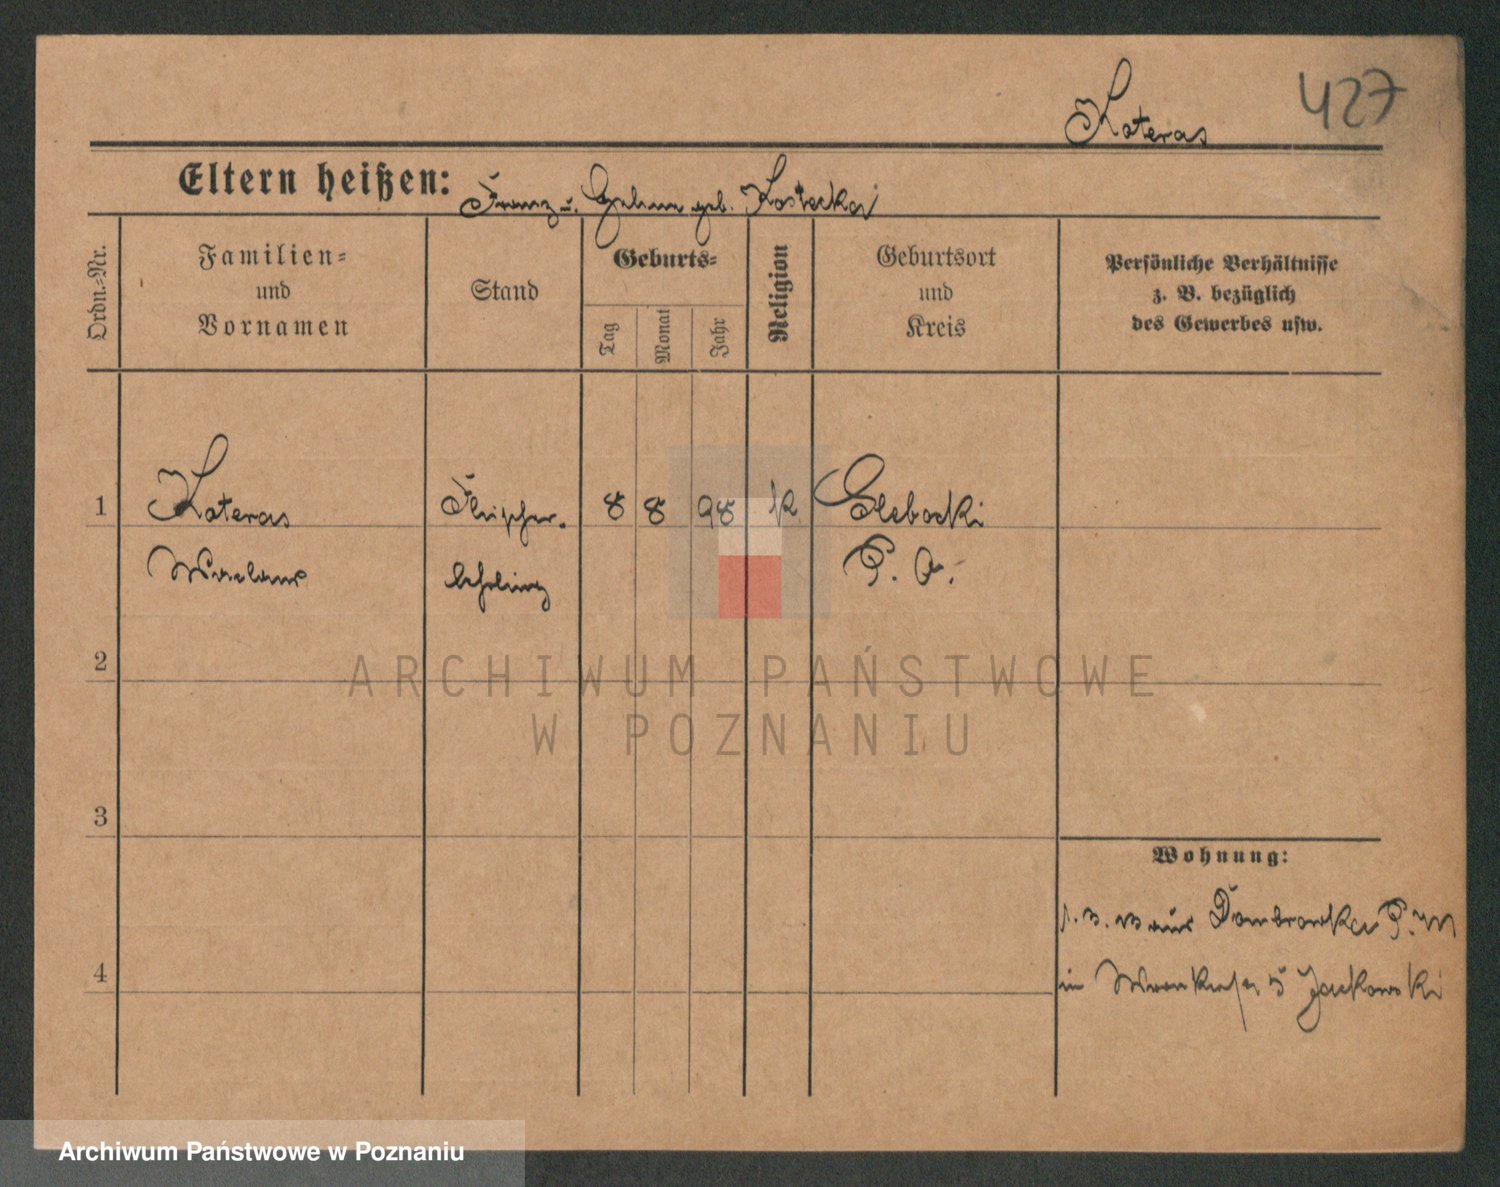 427
Koteras
Eltern heißen: Franz u. geb. Kostecka
Ordn.-Nr.
Familien-
und
Vornamen
Stand
Geburts-
Tag
Monat
Jahr
Religion
Geburtsort
und
Kreis
Persönliche Verhältnisse
z. B. bezüglich
des Gewerbes usw.
1 Koteras Fleischer- 8 8 98 k Glebocki
Waclaus lehrling P. O.
2
ARCHIWUM PAŃSTWOWE
W POZNANIU
3
Wohnung:
aus Dombrowka P. W
4
in 5 Jackowski
Archiwum Państwowe w Poznaniu